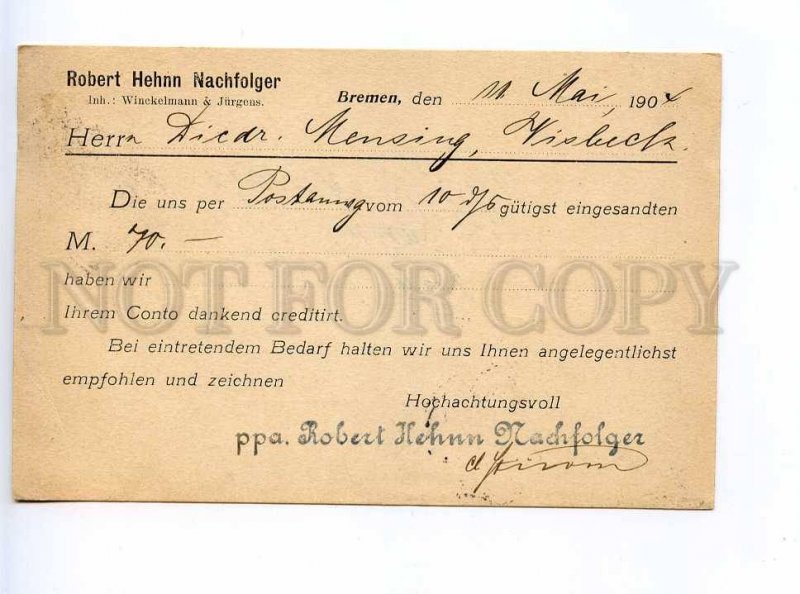 Robert Hehnn Nachfolger
Inh.: Winckelmann & Jürgens.
Bremen, den 11 Mai, 1904
Herrn Diedr. Mensing, Visbeck.
Die uns per Postanwg vom 10 d/5 gütigst eingesandten
M. 70. —
haben wir
NOT FOR COPY
Ihrem Conto dankend creditirt.
Bei eintretendem Bedarf halten wir uns Ihnen angelegentlichst
empfohlen und zeichnen
Hochachtungsvoll
ppa. Robert Hehnn Nachfolger